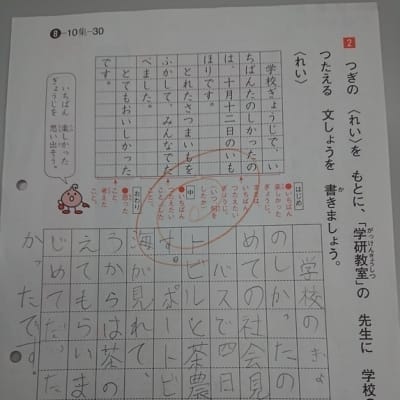 8-10集-30
2 つぎの 〈れい〉を もとに、「学研教室」の 先生に 学校
つたえる 文しょうを 書きましょう。
〈れい〉
学校ぎょうじで、い
ちばんたのしかったの
は、十月十二日のいも
ほりです。
とれたさつまいもを
ふかして、みんなでた
べました。
とてもおいしかった
です。
いちばん
楽しかった
ぎょうじを
思い出そう。
はじめ
中
おわり
学校のぎょ
のしかったの
めての社会見
バスで四日
トビルと茶農
す。ポートビ
海が見れて、
うからは茶の
えてもらいま
じめてだった
かったです。